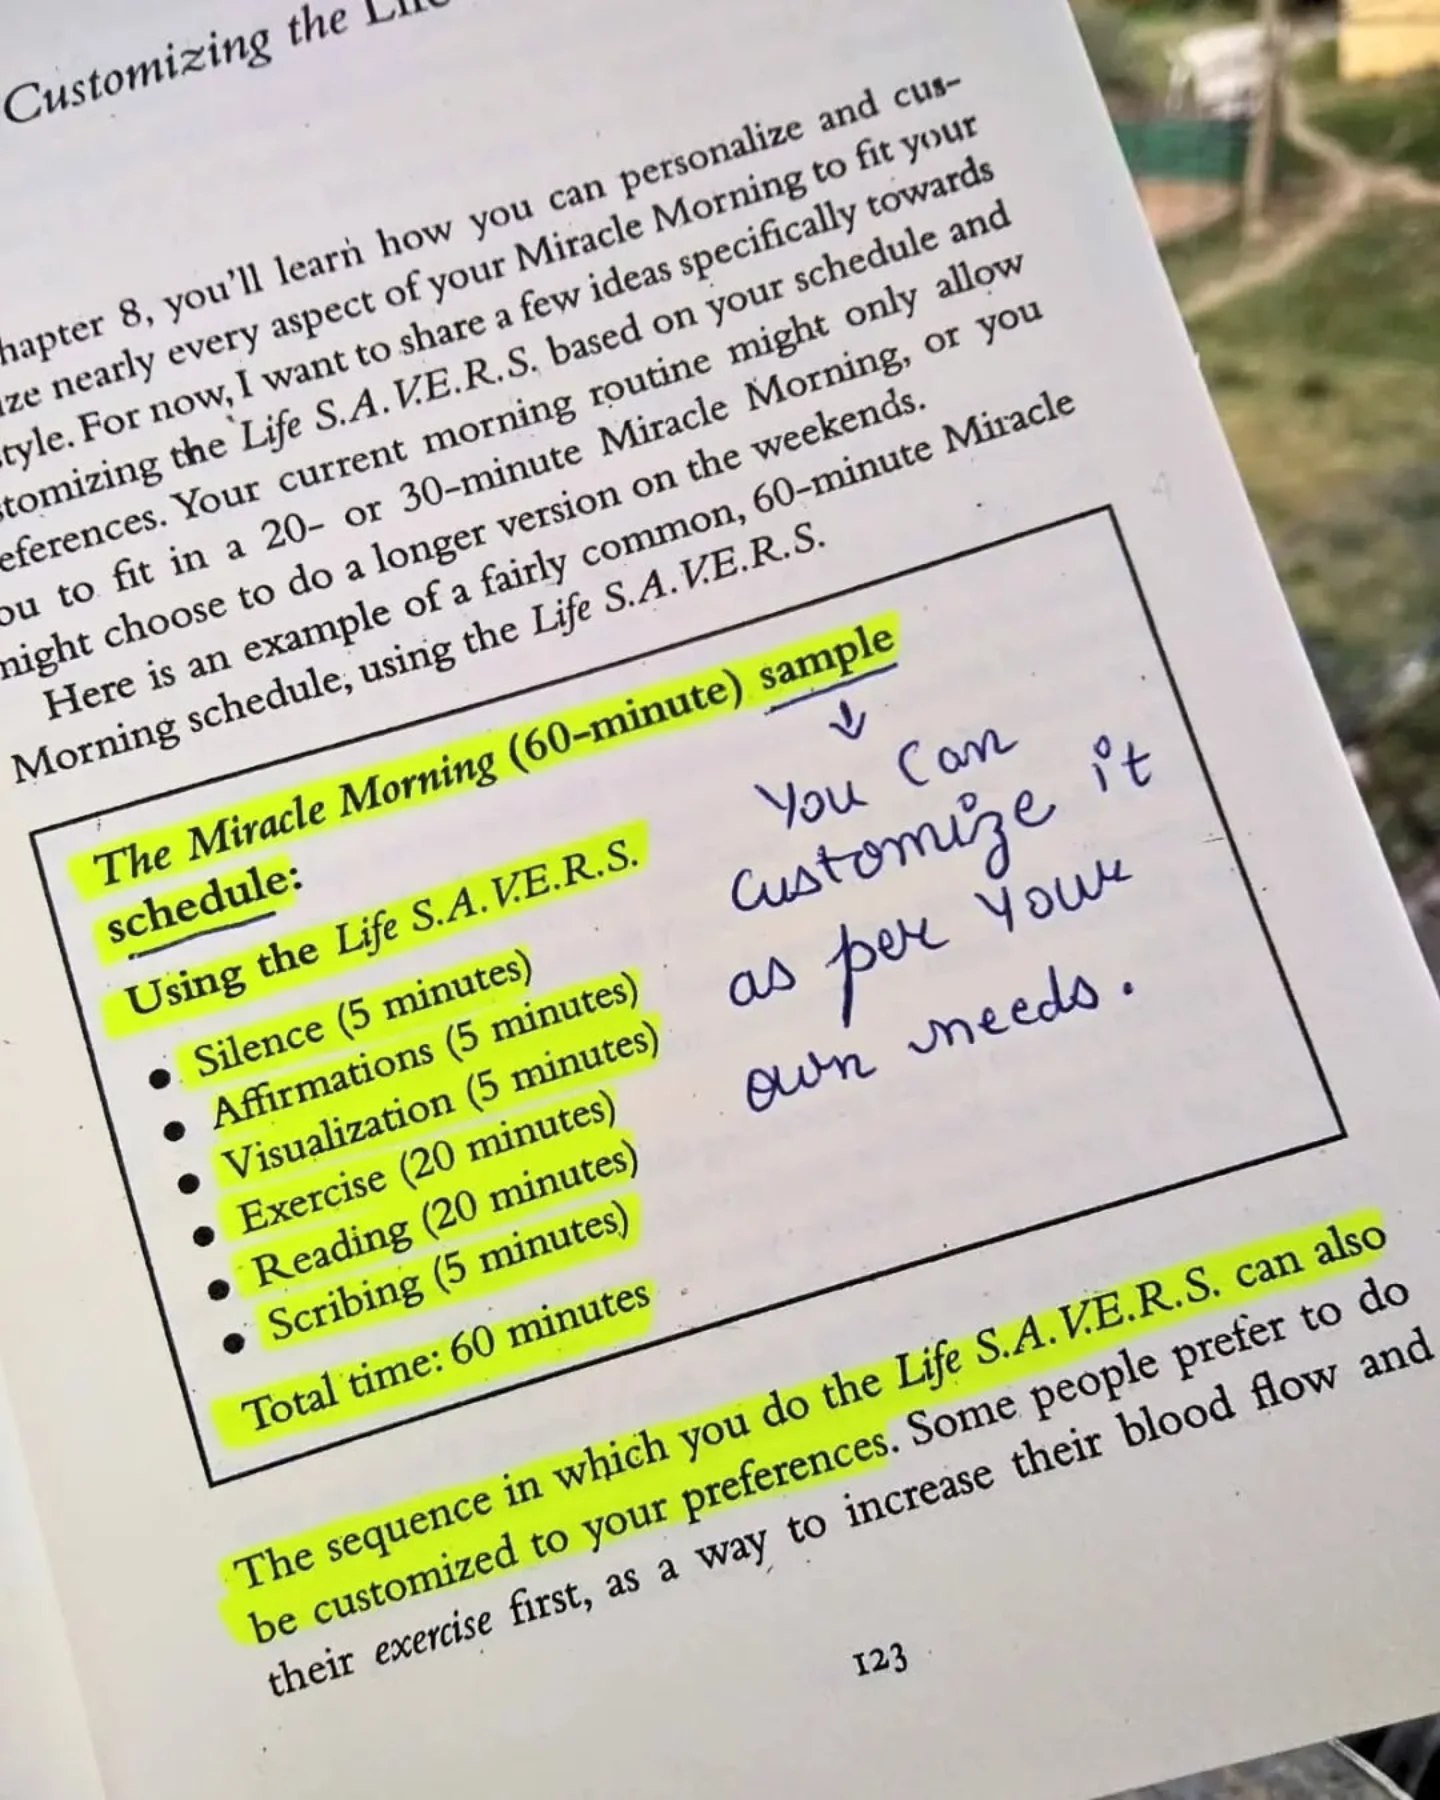 Customizing the
hapter 8, you'll learn how you can personalize and cus-
ize nearly every aspect of your Miracle Morning to fit your
style. For now, I want to share a few ideas specifically towards
stomizing the Life S.A.V.E.R.S. based on your schedule and
eferences. Your current morning routine might only allow
ou to fit in a 20- or 30-minute Miracle Morning, or you
might choose to do a longer version on the weekends.
Here is an example of a fairly common, 60-minute Miracle
Morning schedule, using the Life S.A.V.E.R.S.
The Miracle Morning (60-minute) sample
schedule:
Using the Life S.A.V.E.R.S.
• Silence (5 minutes)
• Affirmations (5 minutes)
• Visualization (5 minutes)
• Exercise (20 minutes)
• Reading (20 minutes)
• Scribing (5 minutes)
Total time: 60 minutes
↓
You Can
customize it
as per Your
own needs.
The sequence in which you do the Life S.A.V.E.R.S. can also
be customized to your preferences. Some people prefer to do
their exercise first, as a way to increase their blood flow and
123